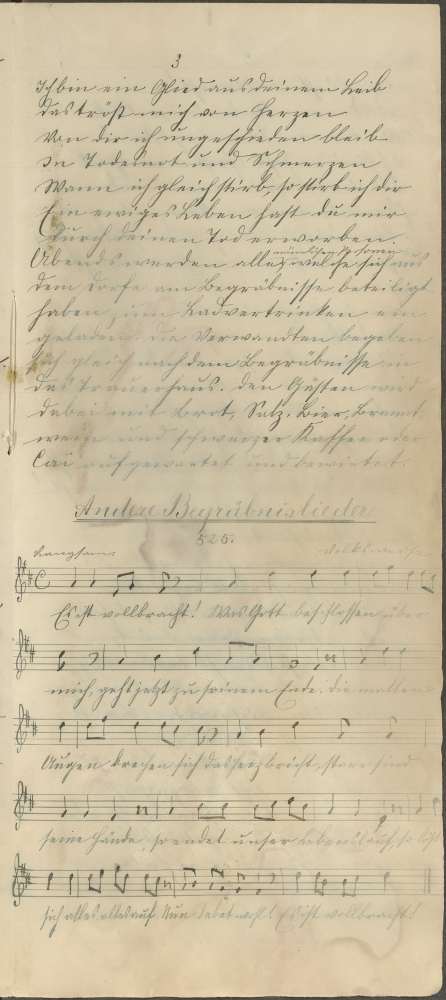 3
Ich bin ein Glied aus deinem Leib
das tröst mich von Herzen
Von dir ich ungeschieden bleib
In Todesnot und Schmerzen
Wann ich gleich stirb, so stirb ich dir
Ein ewiges Leben hast du mir
Durch deinen Tod erworben.
Abends werden alle welche sich aus
dem Dorfe am Begräbnisse beteiligt
haben, zum ein
geladen. Die Verwandten begeben
sich gleich nach dem Begräbnisse in
das Trauerhaus. Den Gästen wird
dabei mit Brot, Salz, Bier, Brannt
wein und schwarzer Kaffee oder
aufgewartet und bewirtet.
Andere Begräbnislieder
525.
Langsam. Volksweise
Es ist vollbracht! Was Gott beschlossen über
mich, geht jetzt zu seinem Ende; die matten
Augen brechen sich das Herz bricht, starr sind
seine Hände, so endet unser Lebenslauf, so löst
sich alles alles auf. Nun lebet wohl! Es ist vollbracht!